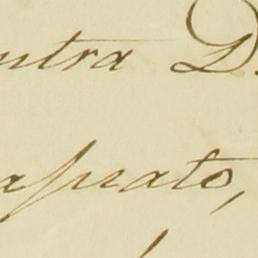 ntra D.
aprato,